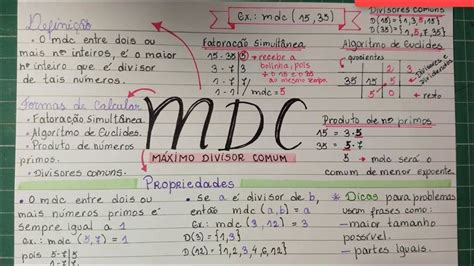 Definição
• O mdc entre dois ou
mais nos inteiros, é o maior
no inteiro que é divisor
de tais números.
Formas de Calcular
• Fatoração Simultânea.
• Algoritmo de Euclides.
• Produto de números
primos.
• Divisores comuns.
Ex.: mdc (15, 35)
Fatoração simultânea
15 - 35 | 5 → recebe a
3 - 7 | 3 bolinha, pois
1 - 7 | 7 o 15 e 35
1 - 1 | ao mesmo tempo
mdc = 5
Divisores comuns
D(15) = {1,3,5,15}
D(35) = {1,5,7,35}
Algoritmo de Euclides
quocientes
2 3
35 15 5
5 0 → resto
divisores e
dividendos
MDC
MÁXIMO DIVISOR COMUM
Produto de nos primos
15 = 3·5
35 = 5·7
→ o mdc será o
comum de menor expoente.
Propriedades
• O mdc entre dois ou
mais números primos é
sempre igual a 1
Ex.: mdc (5,7) = 1
pois 5 = 5·1
7 = 7·1
• se a é divisor de b,
então mdc (a,b) = a
Ex.: mdc (3,12) = 3
D(3) = {1,3}
D(12) = {1,2,3,4,6,12}
* Dicas para problemas
usam frases como:
— maior tamanho
possível.
— partes iguais.